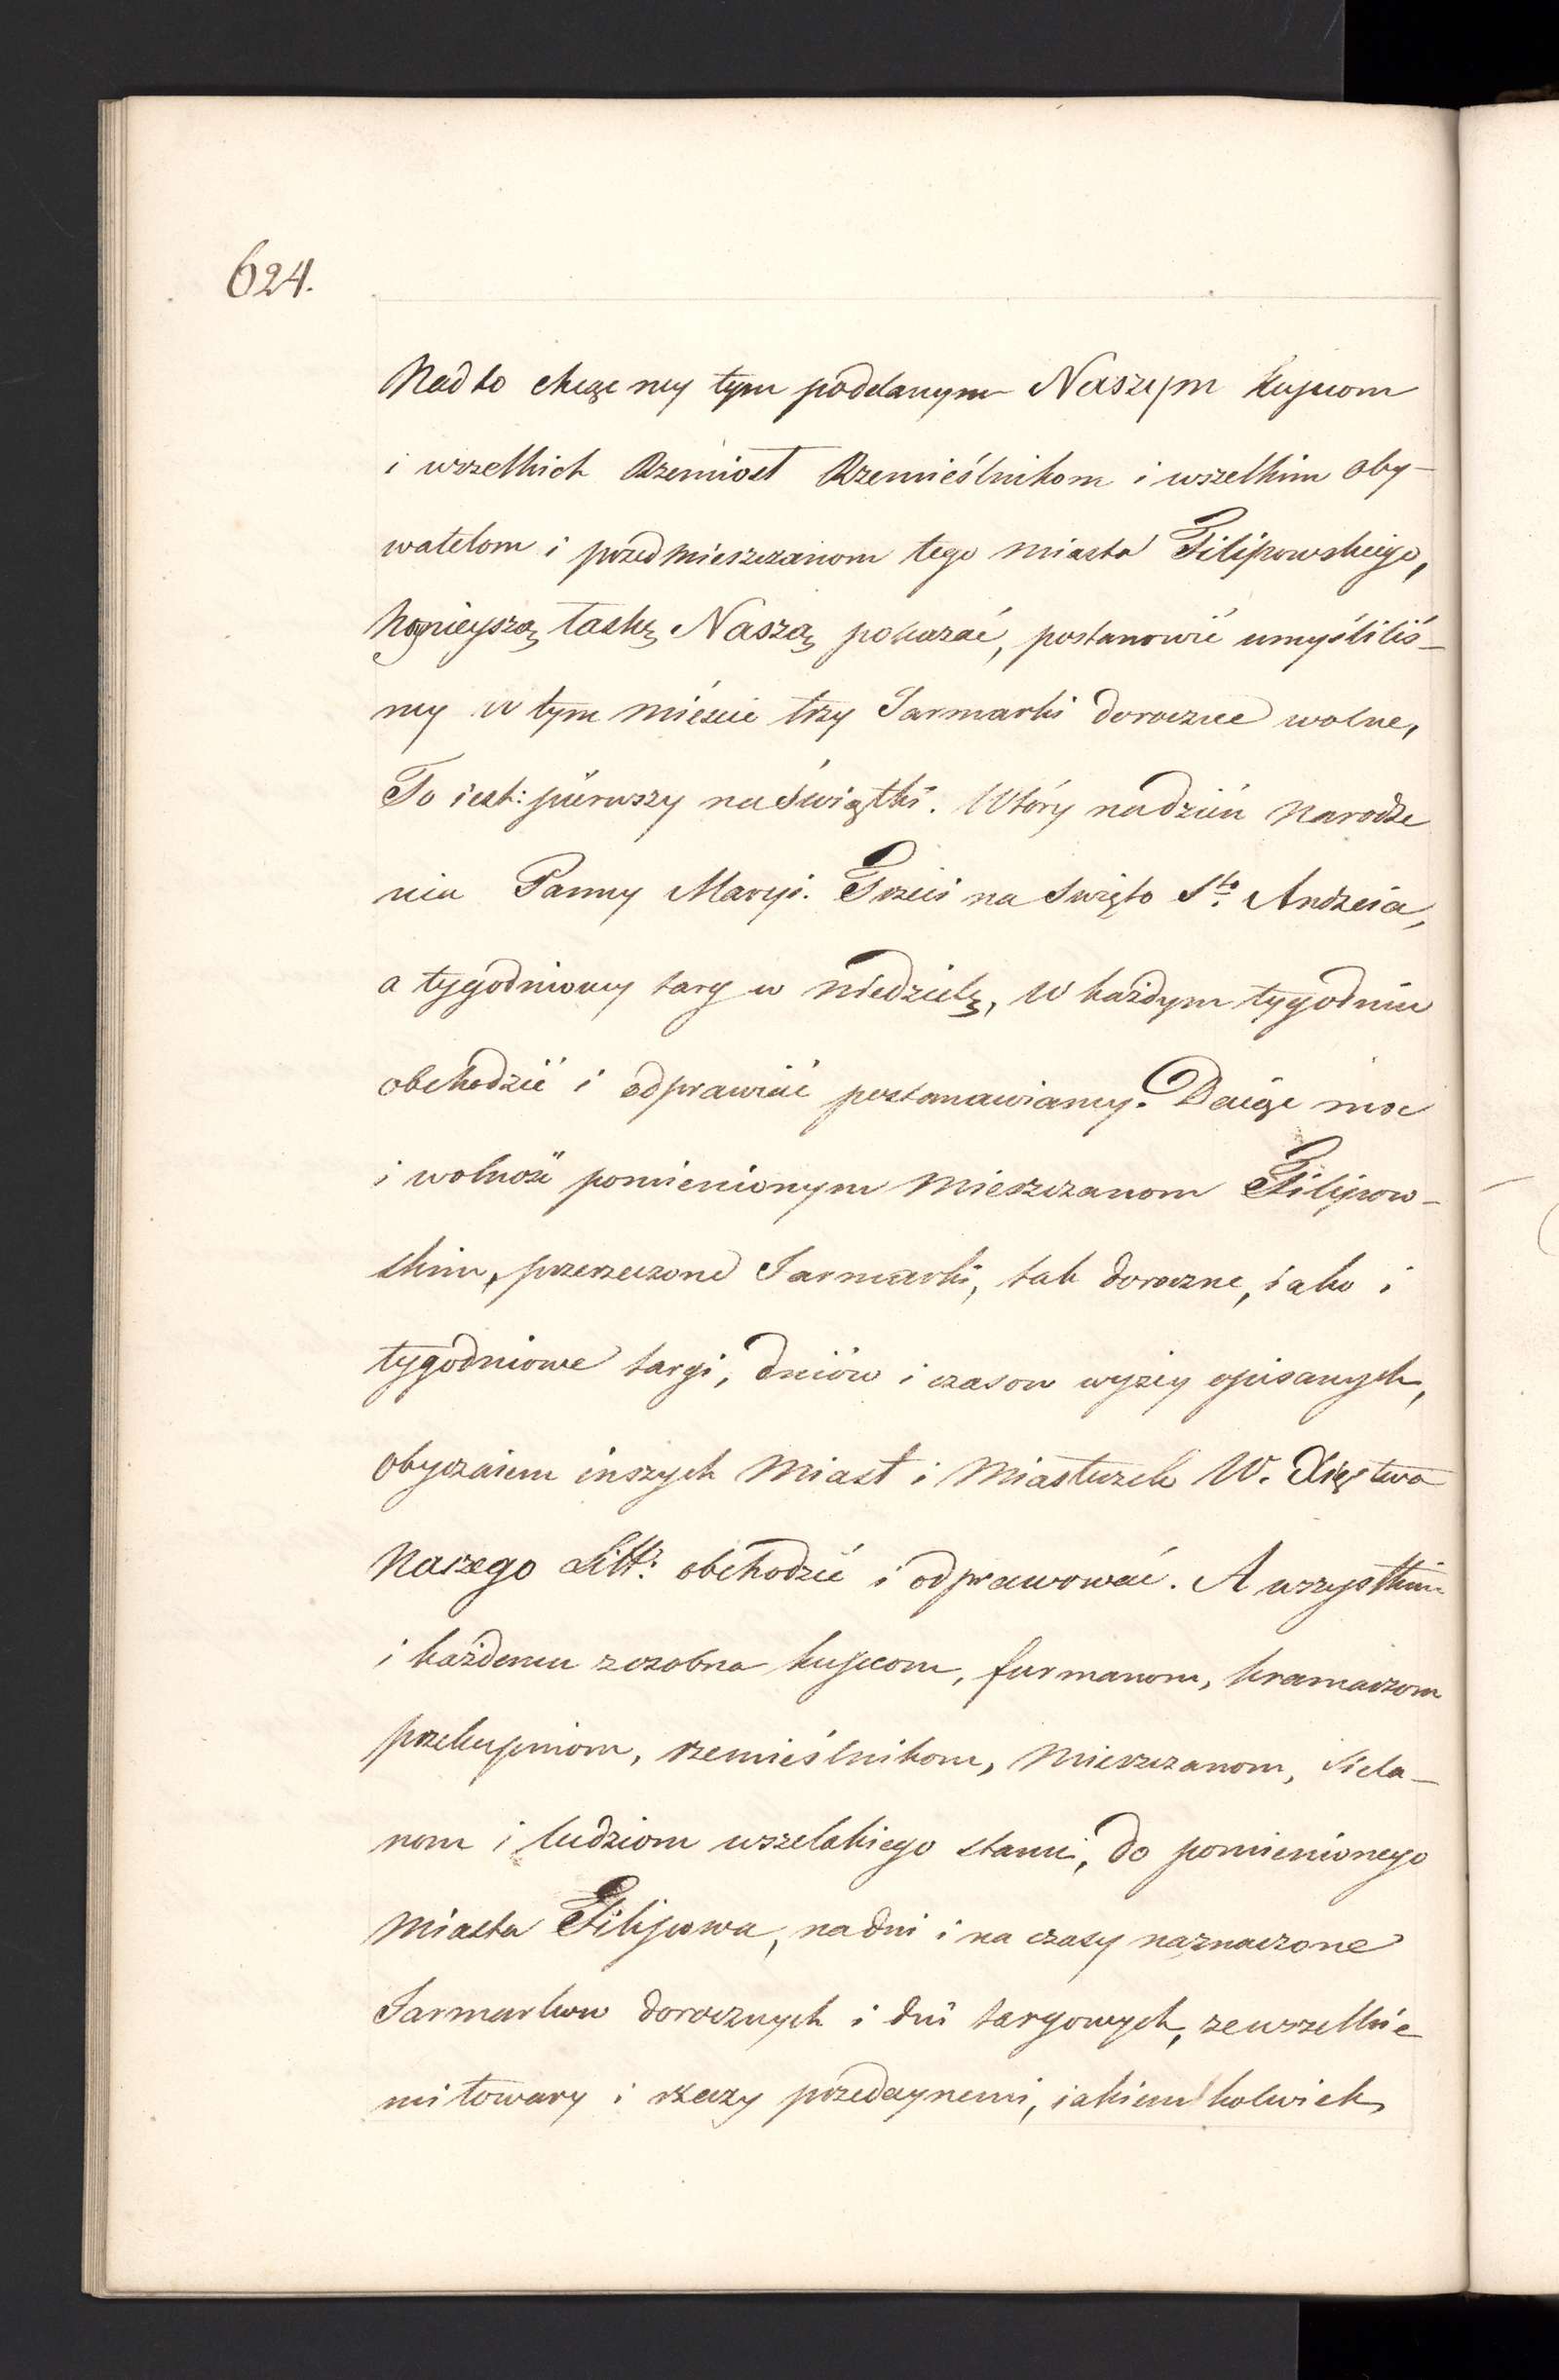 624.
Nad to chcąc my tym poddanym Naszym kupcom
i wszelkich Rzemiosł Rzemieślnikom i wszelkim oby-
watelom i przedmieszczanom tego miasta Filipowskiego,
hoynieyszą łaskę Naszą pokazać, postanowić umyśliliś-
my w tym mieście trzy Jarmarki doroczne wolne,
To iest: pierwszy na Świątki. Wtóry na dzień Narodze
nia Panny Maryi. Trzeci na Swięto Sto. Andrzeia,
a tygodniowy targ w niedzielę, w każdym tygodniu
obchodzić i odprawiać postanawiamy. Daiąc moc
i wolność pomienionym mieszczanom Filipow-
skim, przerzeczone Jarmarki, tak doroczne, iako i
tygodniowe targi, dniów i czasow wyżey opisanych,
obyczaiem inszych Miast i Miasteczek W. Xięstwa
Naszego Litt: obchodzić i odprawować. A wszystkim
i każdemu zosobna kupcom, furmanom, kramarzom
przekupniom, rzemieślnikom, Mieszczanom, siela-
nom i ludziom wszelakiego stanu, do pomienionego
Miasta Filipowa, na dni i na czasy naznaczone
Jarmarkow dorocznych i dni targowych, ze wszelkie
mi towary i rzeczy przedaynemi, iakiemkolwiek